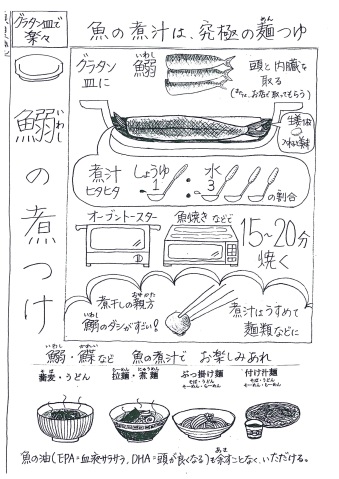 グラタン皿で
楽々
鰯の煮つけ
いわし
魚の煮汁は、究極の麺つゆ
めん
グラタン
皿に
鰯
いわし
頭と内臓を
取る
(または、お店で取ってもらう)
煮汁
ヒタヒタ
しょうゆ
1
:
水
3
の割合
オーブントースター
魚焼きなどで
15~20分
焼く
煮干しの親方
おやかた
鰯のダシがすごい!
いわし
煮汁はうすめて
麺類などに
鰯・鰈など 魚の煮汁で お楽しみあれ
いわし かれい
蕎麦・うどん
そば
拉麺・煮麺
らーめん にゅうめん
ぶっ掛け麺
そば・うどん
そーめん・らーめん
付け汁麺
そば・うどん
そーめん・らーめん
魚の油(EPA=血液サラサラ、DHA=頭が良くなる)も余すことなく、いただける。
あま